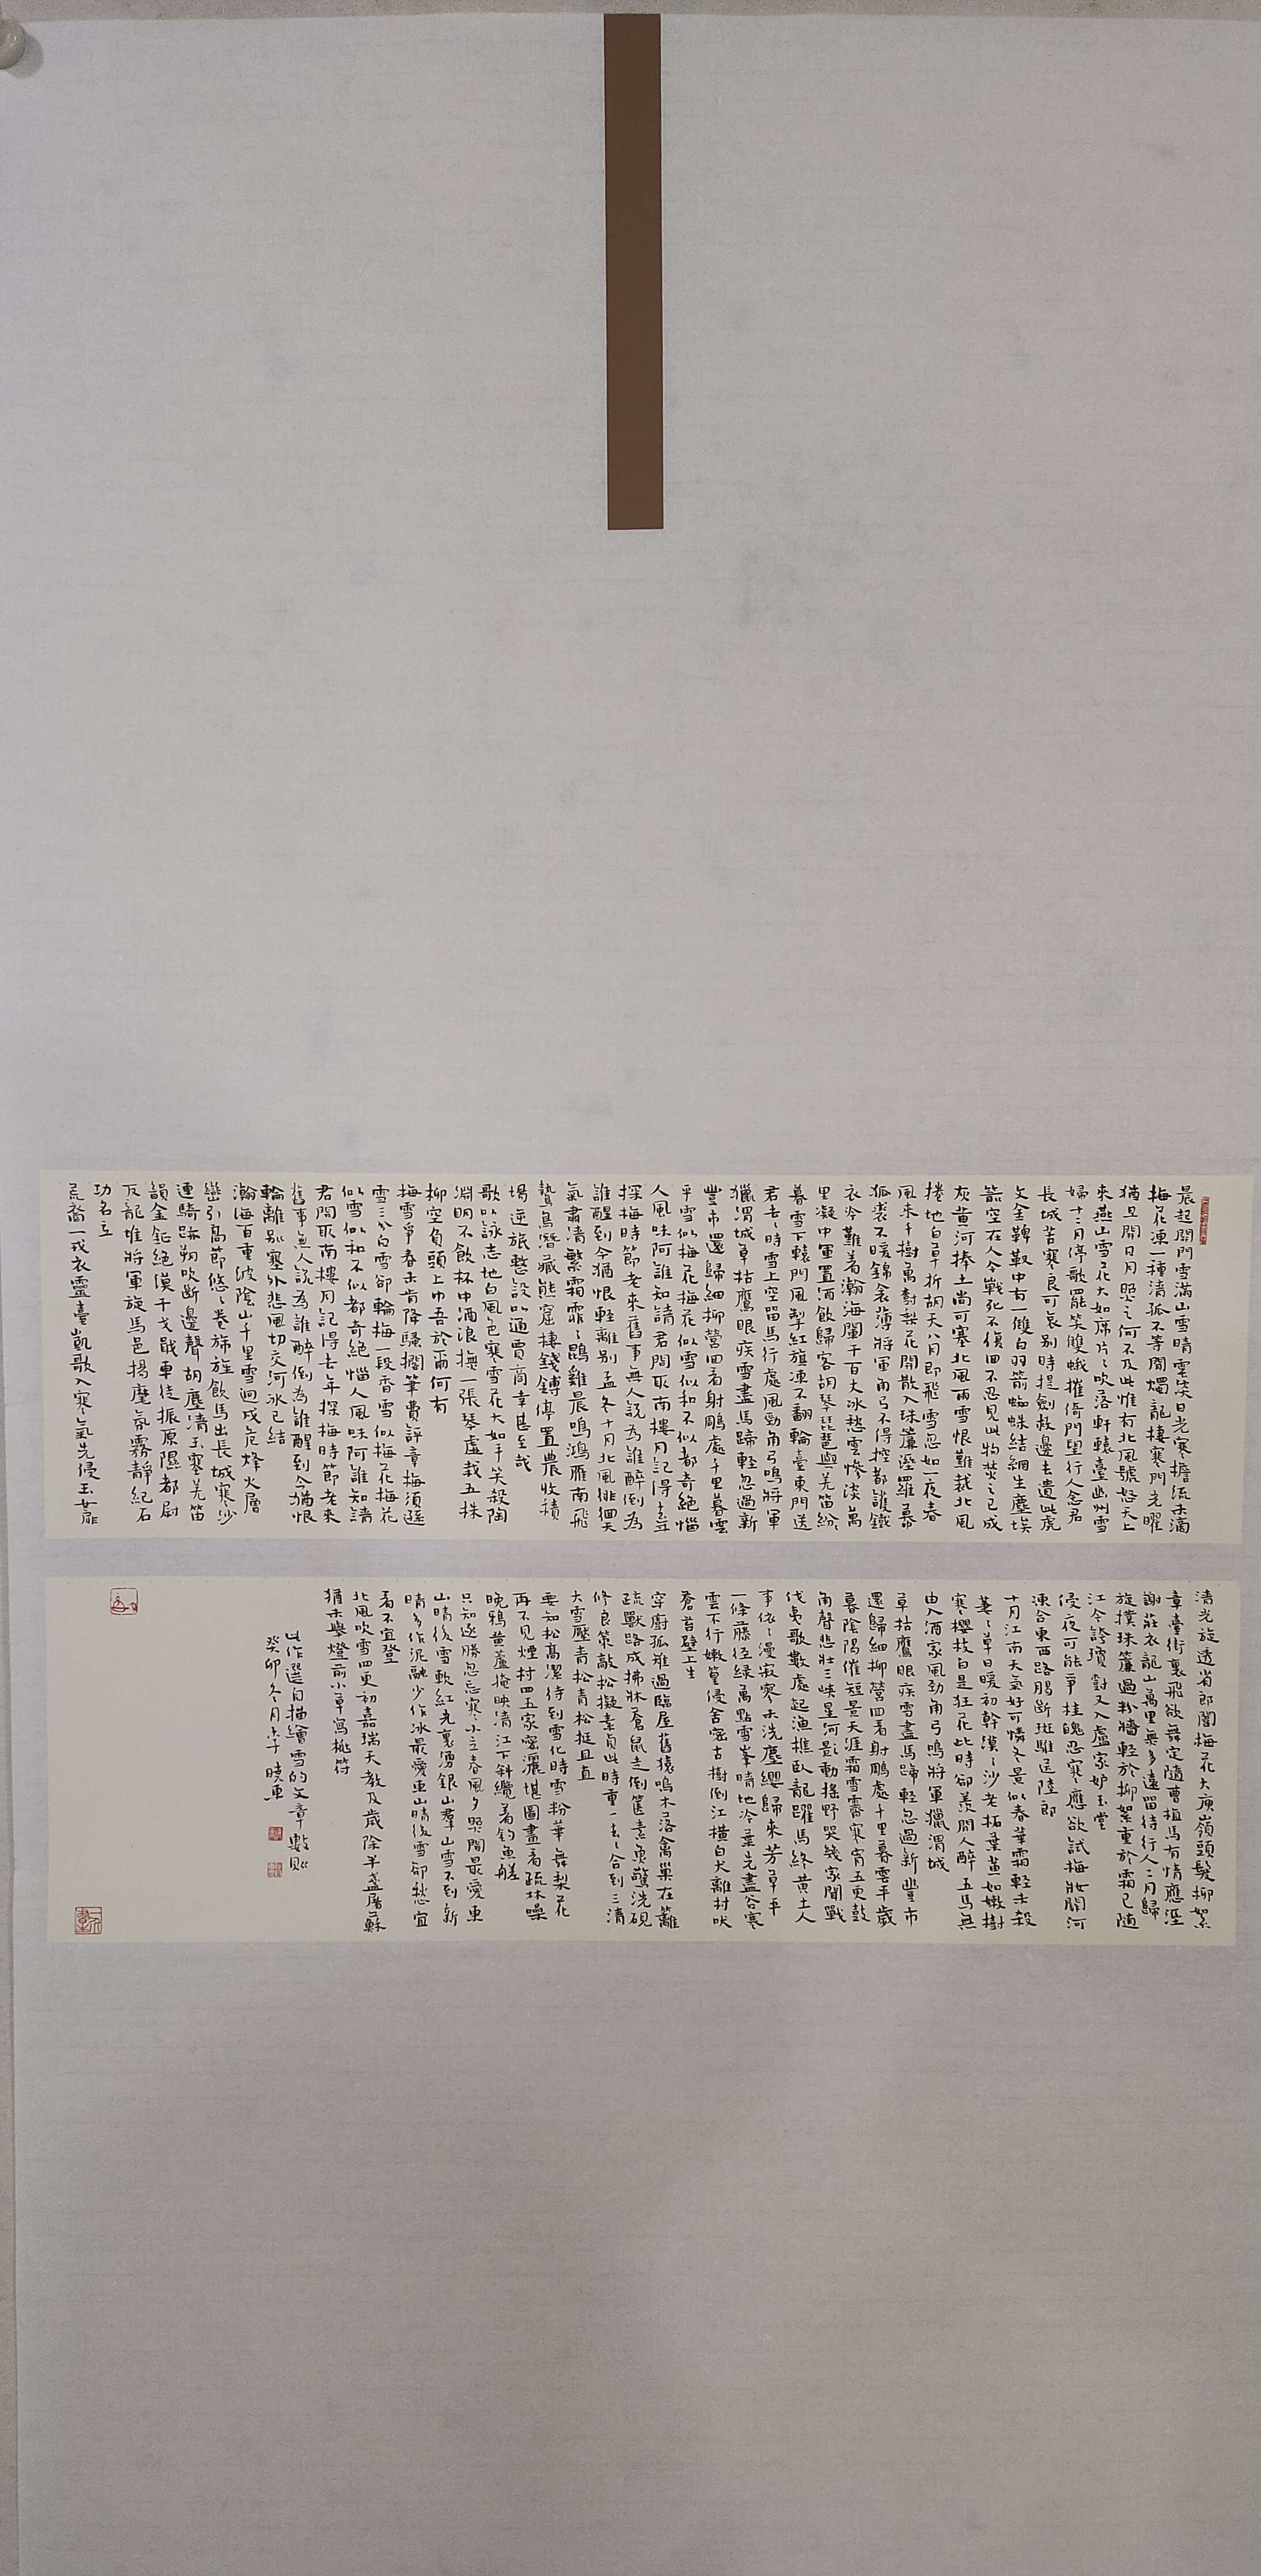 晨起開門雪滿山雪晴雲淡日光寒檐流未滴
梅花凍一種清孤不等閒燭龍棲寒門光曜
猶旦開日月照之何不及此惟有北風號怒天上
來燕山雪花大如席片〻吹落軒轅臺幽州雪
婦十二月停歌罷笑雙蛾摧倚門望行人念君
長城苦寒良可哀別時提劍救邊去遺此虎
文金鞞靫中有一雙白羽箭蜘蛛結網生塵埃
箭空在人今戰死不復回不忍見此物焚之已成
灰黃河捧土尚可塞北風雨雪恨難裁北風
捲地白草折胡天八月即飛雪忽如一夜春
風來千樹萬樹梨花開散入珠簾溼羅幕
狐裘不暖錦衾薄將軍角弓不得控都護鐵
衣冷難着瀚海闌干百丈冰愁雲慘淡萬
里凝中軍置酒飲歸客胡琴琵琶與羌笛紛〻
暮雪下轅門風掣紅旗凍不翻輪臺東門送
君去〻時雪上空留馬行處風勁角弓鳴將軍
獵渭城草枯鷹眼疾雪盡馬蹄輕忽過新
豐市還歸細柳營回看射鵰處千里暮雲
平雪似梅花梅花似雪似和不似都奇絕惱
人風味阿誰知請君問取南樓月記得去年
探梅時節老來舊事無人說為誰醉倒為
誰醒到今猶恨輕離別孟冬十月北風徘徊天
氣肅清繁霜霏〻鵾雞晨鳴鴻雁南飛
鷙鳥潛藏熊窟棲錢鎛停置農收積
場逆旅整設以通賈商幸甚至哉
歌以詠志地白風色寒雪花大如手笑殺陶
淵明不飲杯中酒浪撫一張琴虛栽五株
柳空負頭上巾吾於爾何有
梅雪爭春未肯降騷人閣筆費評章梅須遜
雪三分白雪卻輸梅一段香雪似梅花梅花
似雪似和不似都奇絕惱人風味阿誰知請
君問取南樓月記得去年探梅時節老來
舊事無人說為誰醉倒為誰醒到今猶恨
輪離別塞外悲風切交河冰已結
瀚海百重波陰山千里雪迥戍危烽火層
巒引高節悠〻卷旆旌飲馬出長城寒沙
連騎跡朔吹斷邊聲胡塵清玉塞羌笛
韻金鉦絕漠干戈戢車徒振原隰都尉
反龍堆將軍旋馬邑揚麾氛霧靜紀石
功名立
荒裔一戎衣靈臺凱歌入寒氣先侵玉女扉
清光旋透省郎闈梅花大庾嶺頭髮柳絮
章臺街裏飛欲舞定隨曹植馬有情應溼
謝莊衣龍山萬里無多遠留待行人二月歸
旋撲珠簾過粉牆輕於柳絮重於霜已隨
江令誇瓊樹又入盧家妒玉堂
侵夜可能爭桂魄忍寒應欲試梅妝關河
凍合東西路腸斷斑騅送陸郎
十月江南天氣好可憐冬景似春華霜輕未殺
萋〻草日暖初乾漠〻沙老柘葉黃如嫩樹
寒櫻枝白是狂花此時卻羨閒人醉五馬無
由入酒家風勁角弓鳴將軍獵渭城
草枯鷹眼疾雪盡馬蹄輕忽過新豐市
還歸細柳營回看射鵰處千里暮雲平歲
暮陰陽催短景天涯霜雪霽寒宵五更鼓
角聲悲壯三峽星河影動搖野哭幾家聞戰
伐夷歌數處起漁樵臥龍躍馬終黃土人
事依〻漫寂寥未洗塵纓歸來芳草平
一條藤徑綠萬點雪峯晴地冷葉先盡谷寒
雲不行嫩篁侵舍密古樹倒江橫白犬離村吠
蒼苔壁上生
穿廚孤雉過臨屋舊猿鳴木落禽巢在籬
疏獸路成拂牀蒼鼠走倒篋素魚驚洗硯
修良策敲松擬素貞此時重一去〻合到三清
大雪壓青松青松挺且直
要知松高潔待到雪化時雪粉華舞梨花
再不見煙村四五家密灑堪圖畫看疏林噪
晚鴉黃蘆掩映清江下斜纜着釣魚艖
只知逐勝忽忘寒小立春風夕照間最愛東
山晴後雪軟紅光裏湧銀山羣山雪不到新
晴多作泥融少作冰最愛東山晴後雪卻愁宜
看不宜登
北風吹雪四更初嘉瑞天教及歲除半盞屠蘇
猶未舉燈前小草寫桃符
此作選自描繪雪的文章數則
癸卯冬月 曉東